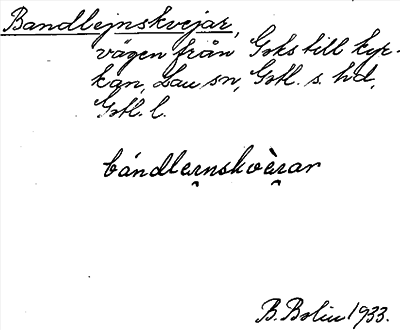 Bandlejnskvejar,
vägen från Goks till kyr-
kan, Lau sn, Gotl. s. hd,
Gotl. l.
bándlęrnskvè̜rar
B. Bolin 1933.